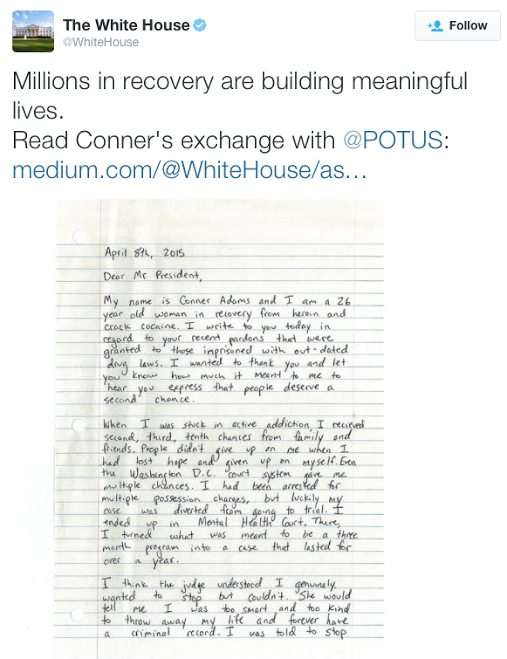 The White House
@WhiteHouse
Follow
Millions in recovery are building meaningful
lives.
Read Conner's exchange with @POTUS:
medium.com/@WhiteHouse/as…
April 8th, 2015
Dear Mr President,
My name is Conner Adams and I am a 26
year old woman in recovery from heroin and
crack cocaine. I write to you today in
regard to your recent pardons that were
granted to those imprisoned with out-dated
drug laws. I wanted to thank you and let
you know how much it meant to me to
hear you express that people deserve a
second chance.
When I was stuck in active addiction, I recieved
second, third, tenth chances from family and
friends. People didn't give up on me when I
had lost hope and given up on myself. Even
the Washington D.C. court system gave me
multiple chances. I had been arrested for
multiple possession charges, but luckily my
case was diverted from going to trial. I
ended up in Mental Health Court. There,
I turned what was meant to be a three
month program into a case that lasted for
over a year.
I think the judge understood I genuinely
wanted to stop but couldn't. She would
tell me I was too smart and too kind
to throw away my life and forever have
a criminal record. I was told to stop